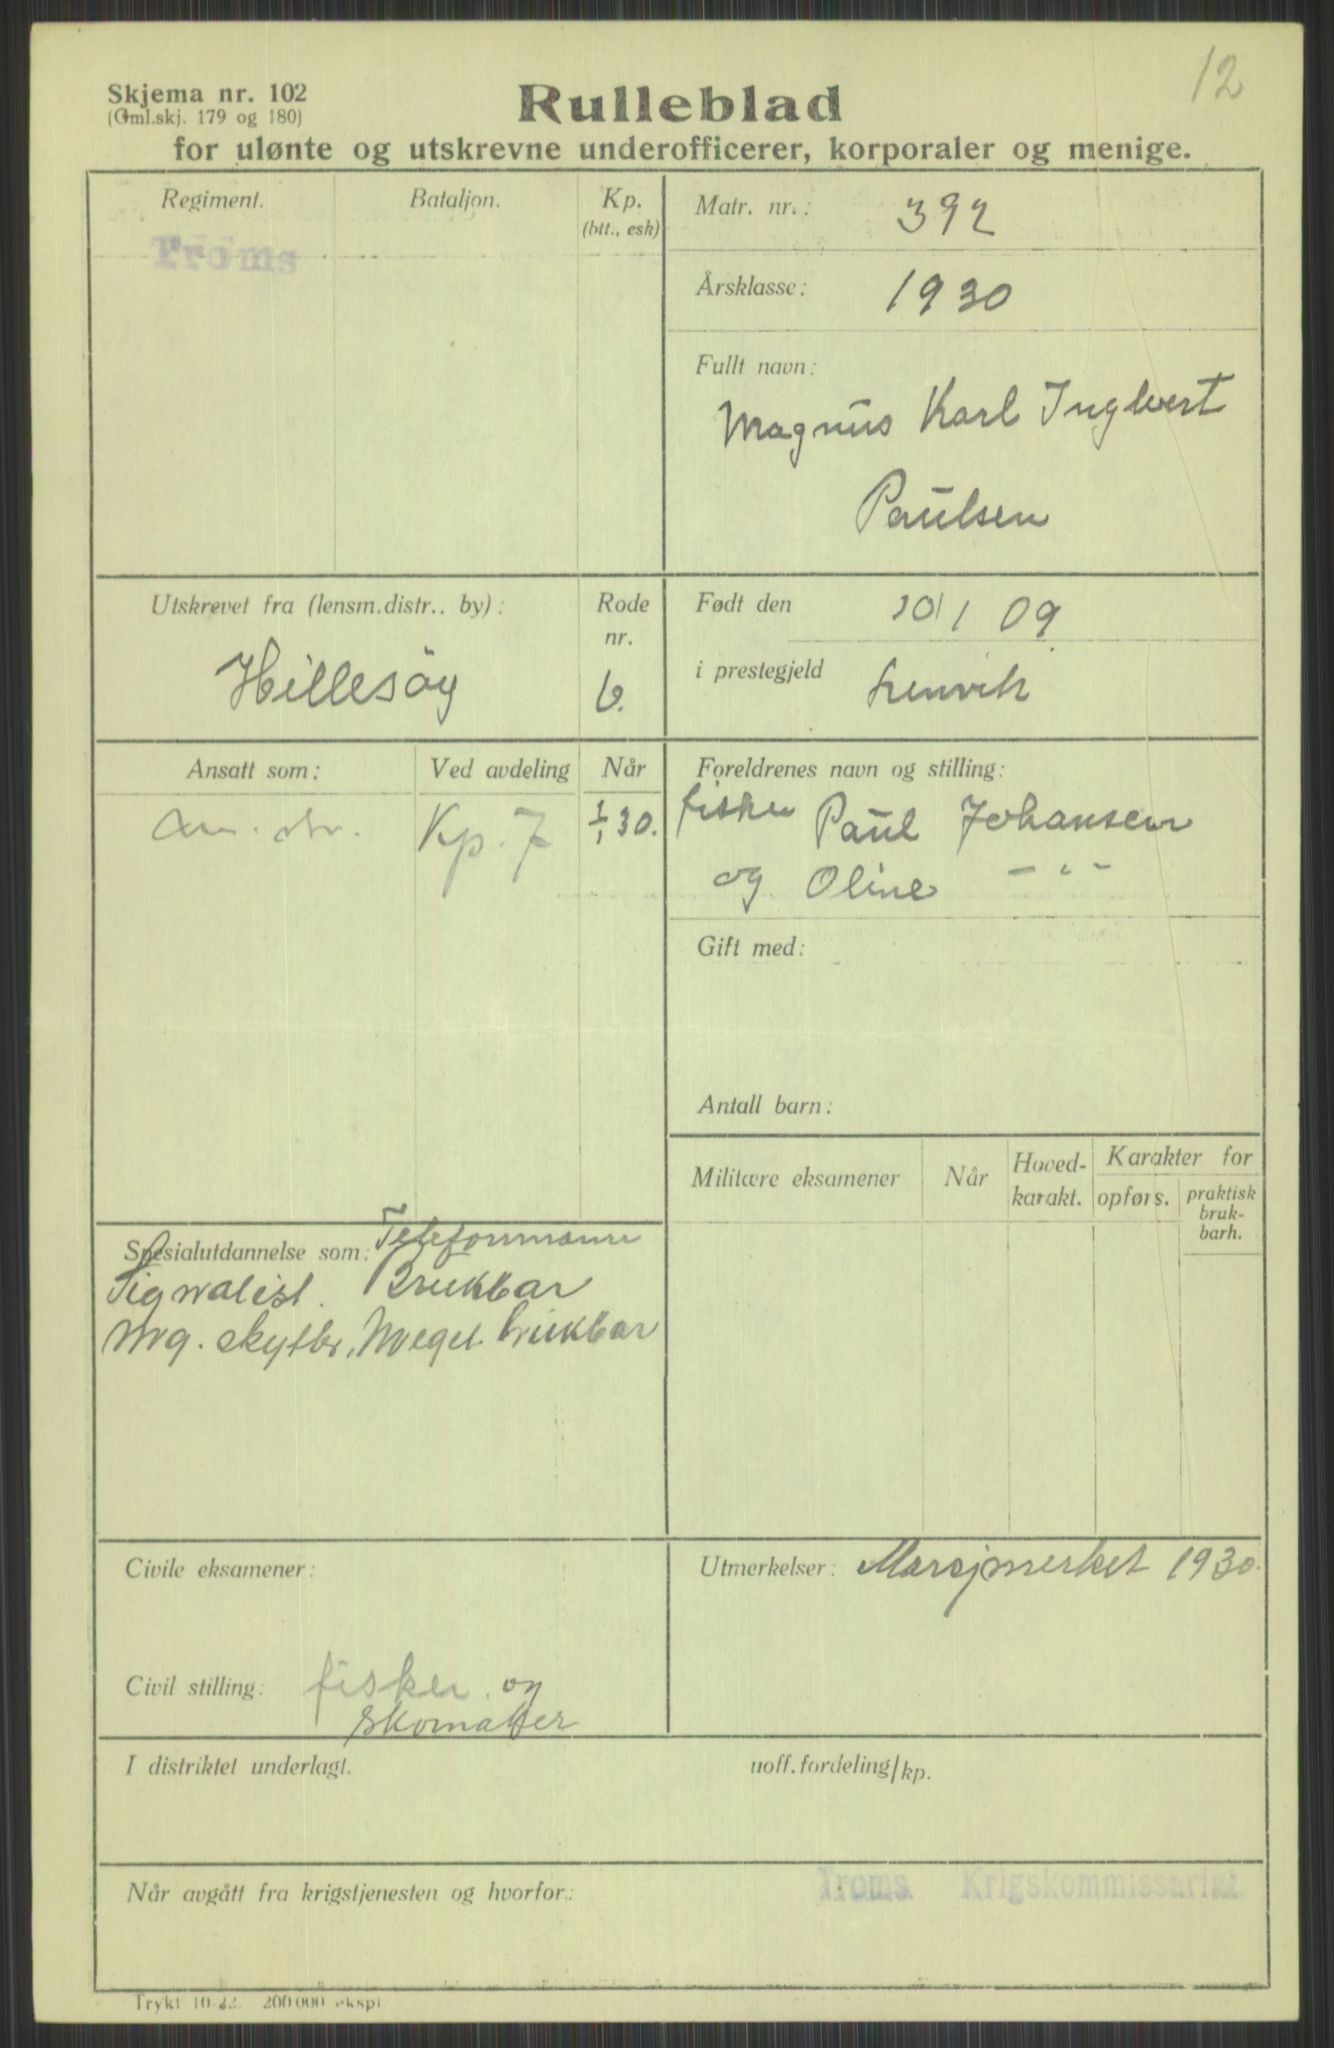 12
Skjema nr. 102
(Gml.skj. 179 og 180)
Rulleblad
for ulønte og utskrevne underofficerer, korporaler og menige.
Regiment.
Troms
Bataljon.
Kp.
(btt., esk)
Matr. nr.: 392
Årsklasse: 1930
Fullt navn:
Magnus Karl Ingbert
Paulsen
Utskrevet fra (lensm.distr., by):
Hillesöy
Rode
nr.
6.
Født den 10/1 09.
i prestegjeld Lenvik
Ansatt som: Ved avdeling Når
Kp. 7 1/1 30.
Foreldrenes navn og stilling:
fisker Paul Johansen
og Oline - " -
Gift med:
Antall barn:
Militære eksamener
Når
Hoved-
karakt.
Karakter for
opførs.
praktisk
bruk-
barh.
Spesialutdannelse som: Telefonmann
Signalist. Brukbar
Mg. skytter, Meget brukbar
Civile eksamener:
Utmerkelser: Marsjmerket 1930.
Civil stilling: fisker og
skomaker
I distriktet underlagt.
uoff.fordeling/kp.
Når avgått fra krigstjenesten og hvorfor:
Troms Krigskommissariat.
Trykt 10-22. 200000 ekspl